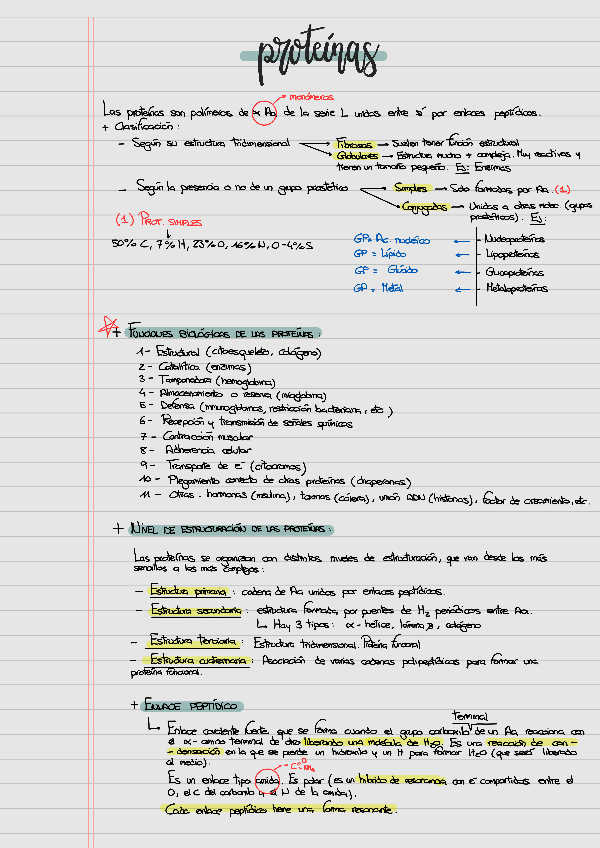 proteínas
monómeros
Las proteínas son polímeros de α Aa de la serie L unidos entre sí por enlaces peptídicos.
+ Clasificación:
- Según su estructura tridimensional → Fibrosas → Suelen tener función estructural
Globulares → Estructura mucho + compleja. Muy reactivas y
tienen un tamaño pequeño. Ej: Enzimas
- Según la presencia o no de un grupo prostético → Simples → Solo formadas por Aa. (1)
Conjugadas → Unidas a otras moléc. (grupos
prostéticos). Ej:
(1) PROT. SIMPLES
50% C, 7% H, 23% O, 16% N, 0-4% S
GP= Ac. nucleico ← Nucleoproteínas
GP = Lípido ← Lipoproteínas
GP = Glúcido ← Glucoproteínas
GP = Metal ← Metaloproteínas
+ FUNCIONES BIOLÓGICAS DE LAS PROTEÍNAS:
1- Estructural (citoesqueleto, colágeno)
2- Catalítica (enzimas)
3- Tamponadora (hemoglobina)
4- Almacenamiento o reserva (mioglobina)
5- Defensa (inmunoglobinas, restricción bacteriana, etc.)
6- Recepción y transmisión de señales químicas
7- Contracción muscular
8- Adherencia celular
9- Transporte de e⁻ (citocromos)
10- Plegamiento correcto de otras proteínas (chaperonas)
11- Otras: hormonas (insulina), toxinas (cólera), unión ADN (histonas), factor de crecimiento, etc.
+ NIVEL DE ESTRUCTURACIÓN DE LAS PROTEÍNAS:
Las proteínas se organizan con distintos niveles de estructuración, que van desde los más
sencillos a los más complejos:
- Estructura primaria: cadena de Aa unidos por enlaces peptídicos.
- Estructura secundaria: estructura formada por puentes de H₂ periódicos entre Aa.
↳ Hay 3 tipos: α-hélice, lámina β, colágeno
- Estructura terciaria: Estructura tridimensional. Proteína funcional
- Estructura cuaternaria: Asociación de varias cadenas polipeptídicas para formar una
proteína funcional.
+ ENLACE PEPTÍDICO
Terminal
↳ Enlace covalente fuerte que se forma cuando el grupo carboxilo de un Aa reacciona con
el α-amino terminal de otro liberando una molécula de H₂O. Es una reacción de con-
-densación en la que se pierde un hidroxilo y un H para formar H₂O (que será liberada
al medio).
Es un enlace tipo amida. Es polar (es un híbrido de resonancia con e⁻ compartidos entre el
O, el C del carbonilo y el N de la amida).
Cada enlace peptídico tiene una forma resonante.